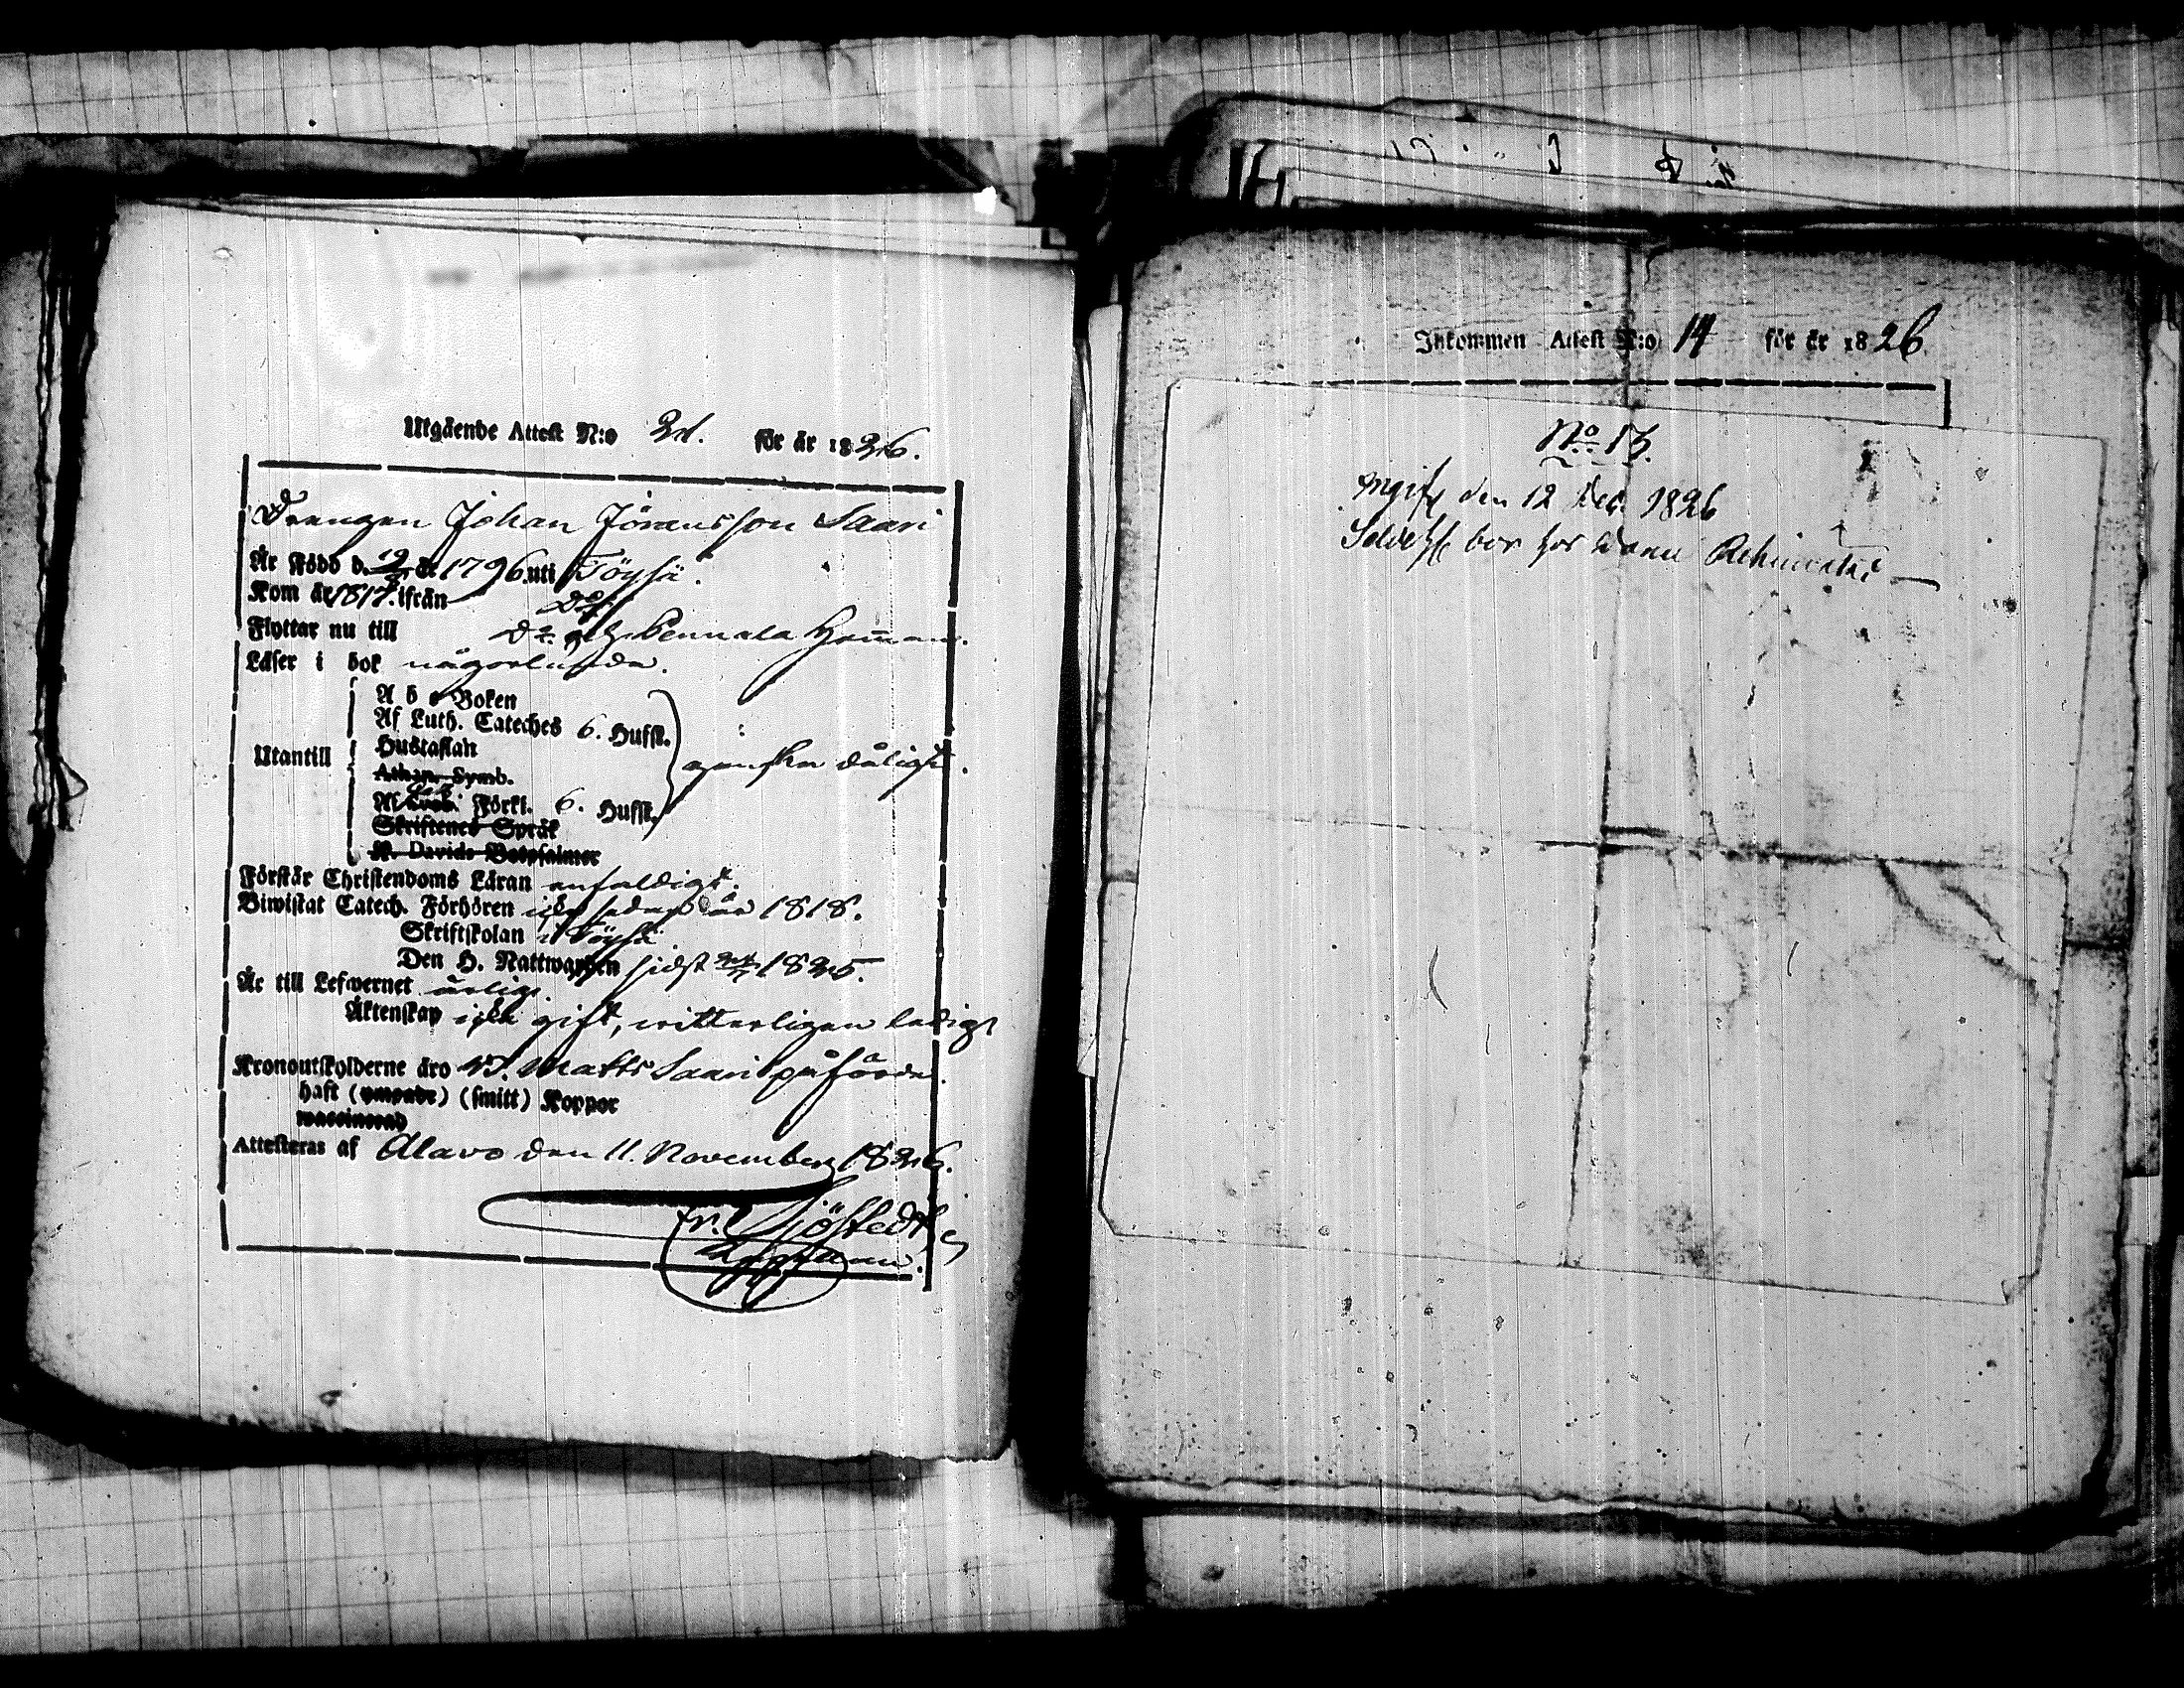 Utgående Attest N:o 21. för år 1826.
Drengen Johan Jöransson Saari
Är Född d. 19/8 år 1796. uti Töysä.
Kom år 1817. ifrån Do
Flyttar nu till Do och Pennala Hemman.
Läser i bok någorlunda.
A b c Boken
Af Luth. Cateches 6. Hufst.
Hustaflan
Utantill
ganska dåligt.
Athan. Symb.
Af Förkl. 6. Hufst.
Skriftenes Språk
K. Davids Botpsalmer
Förstår Christendoms Läran enfaldigt.
Biwistat Catech. Förhören icke sedan år 1818.
Skriftskolan i Töysä
Den H. Nattwarden sidst 1825.
Är till Lefwernet ärlig.
Äktenskap icke gift, witterligen ledig
Kronoutskylderne äro Matts Saari påförde.
haft (ympade) (smitt) Koppor
waccinerad
Attesteras af Alavo den 11. November 1826.
Fr. Sjöstedt
Inkommen Attest N:o 14 för år 1826
No 13.
den 12 Dec. 1826
bor hos